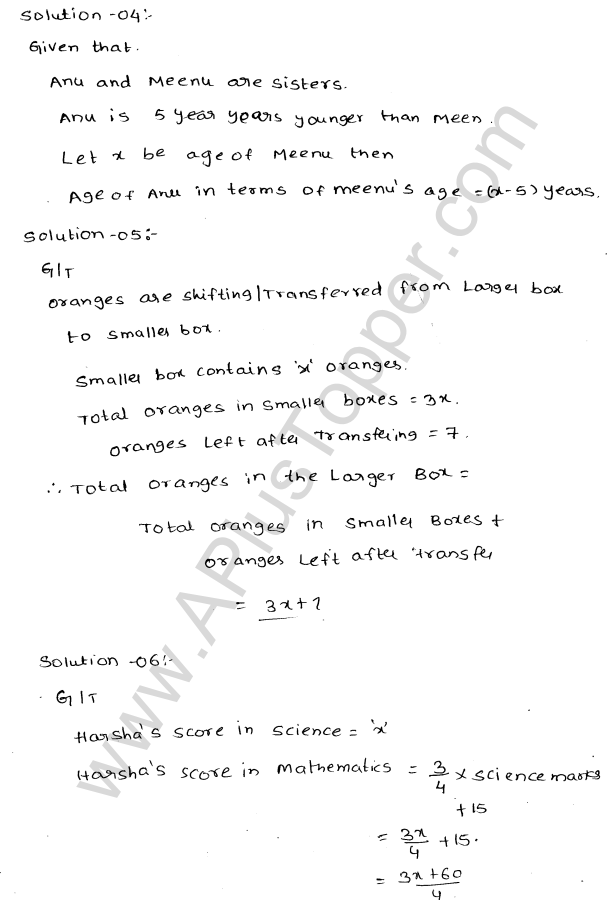 Solution -04:-
Given that.
Anu and Meenu are sisters.
Anu is 5 year years younger than Meen.
Let x be age of Meenu then
Age of Anu in terms of meenu's age = (x-5) years.
Solution -05:-
G/T
oranges are shifting/Transferred from Larger box
to smaller box.
Smaller box contains 'x' oranges.
Total oranges in smaller boxes = 3x.
oranges Left after transfering = 7.
∴ Total oranges in the Larger Box =
Total oranges in smaller Boxes +
oranges Left after transfer
= 3x+7
Solution -06:-
G/T
Harsha's score in science = 'x'
Harsha's score in mathematics = 3/4 x science marks
+15
= 3x/4 +15.
= 3x+60/4
www.APlusTopper.com